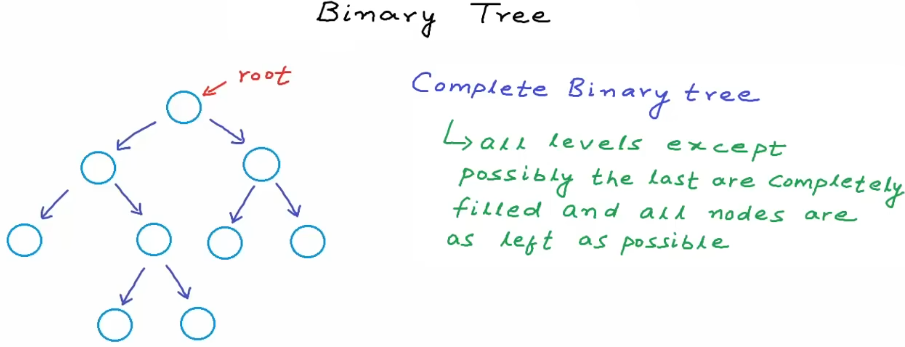 Binary Tree
root
Complete Binary tree
all levels except
possibly the last are completely
filled and all nodes are
as left as possible